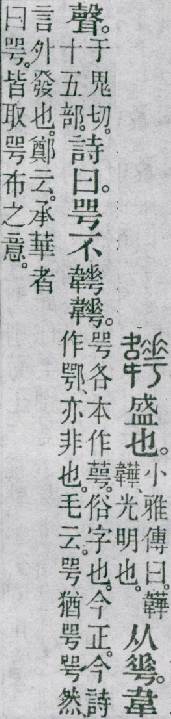 韡盛也。小雅傳曰。韡
韡光明也。
从𠌶。韋
聲。于鬼切。
十五部。
詩曰。咢不韡韡。
咢各本作萼。俗字也。今正。今詩
作鄂。亦非也。毛云。咢猶咢咢然。
言外發也。鄭云。承華者
曰咢。皆取咢布之意。